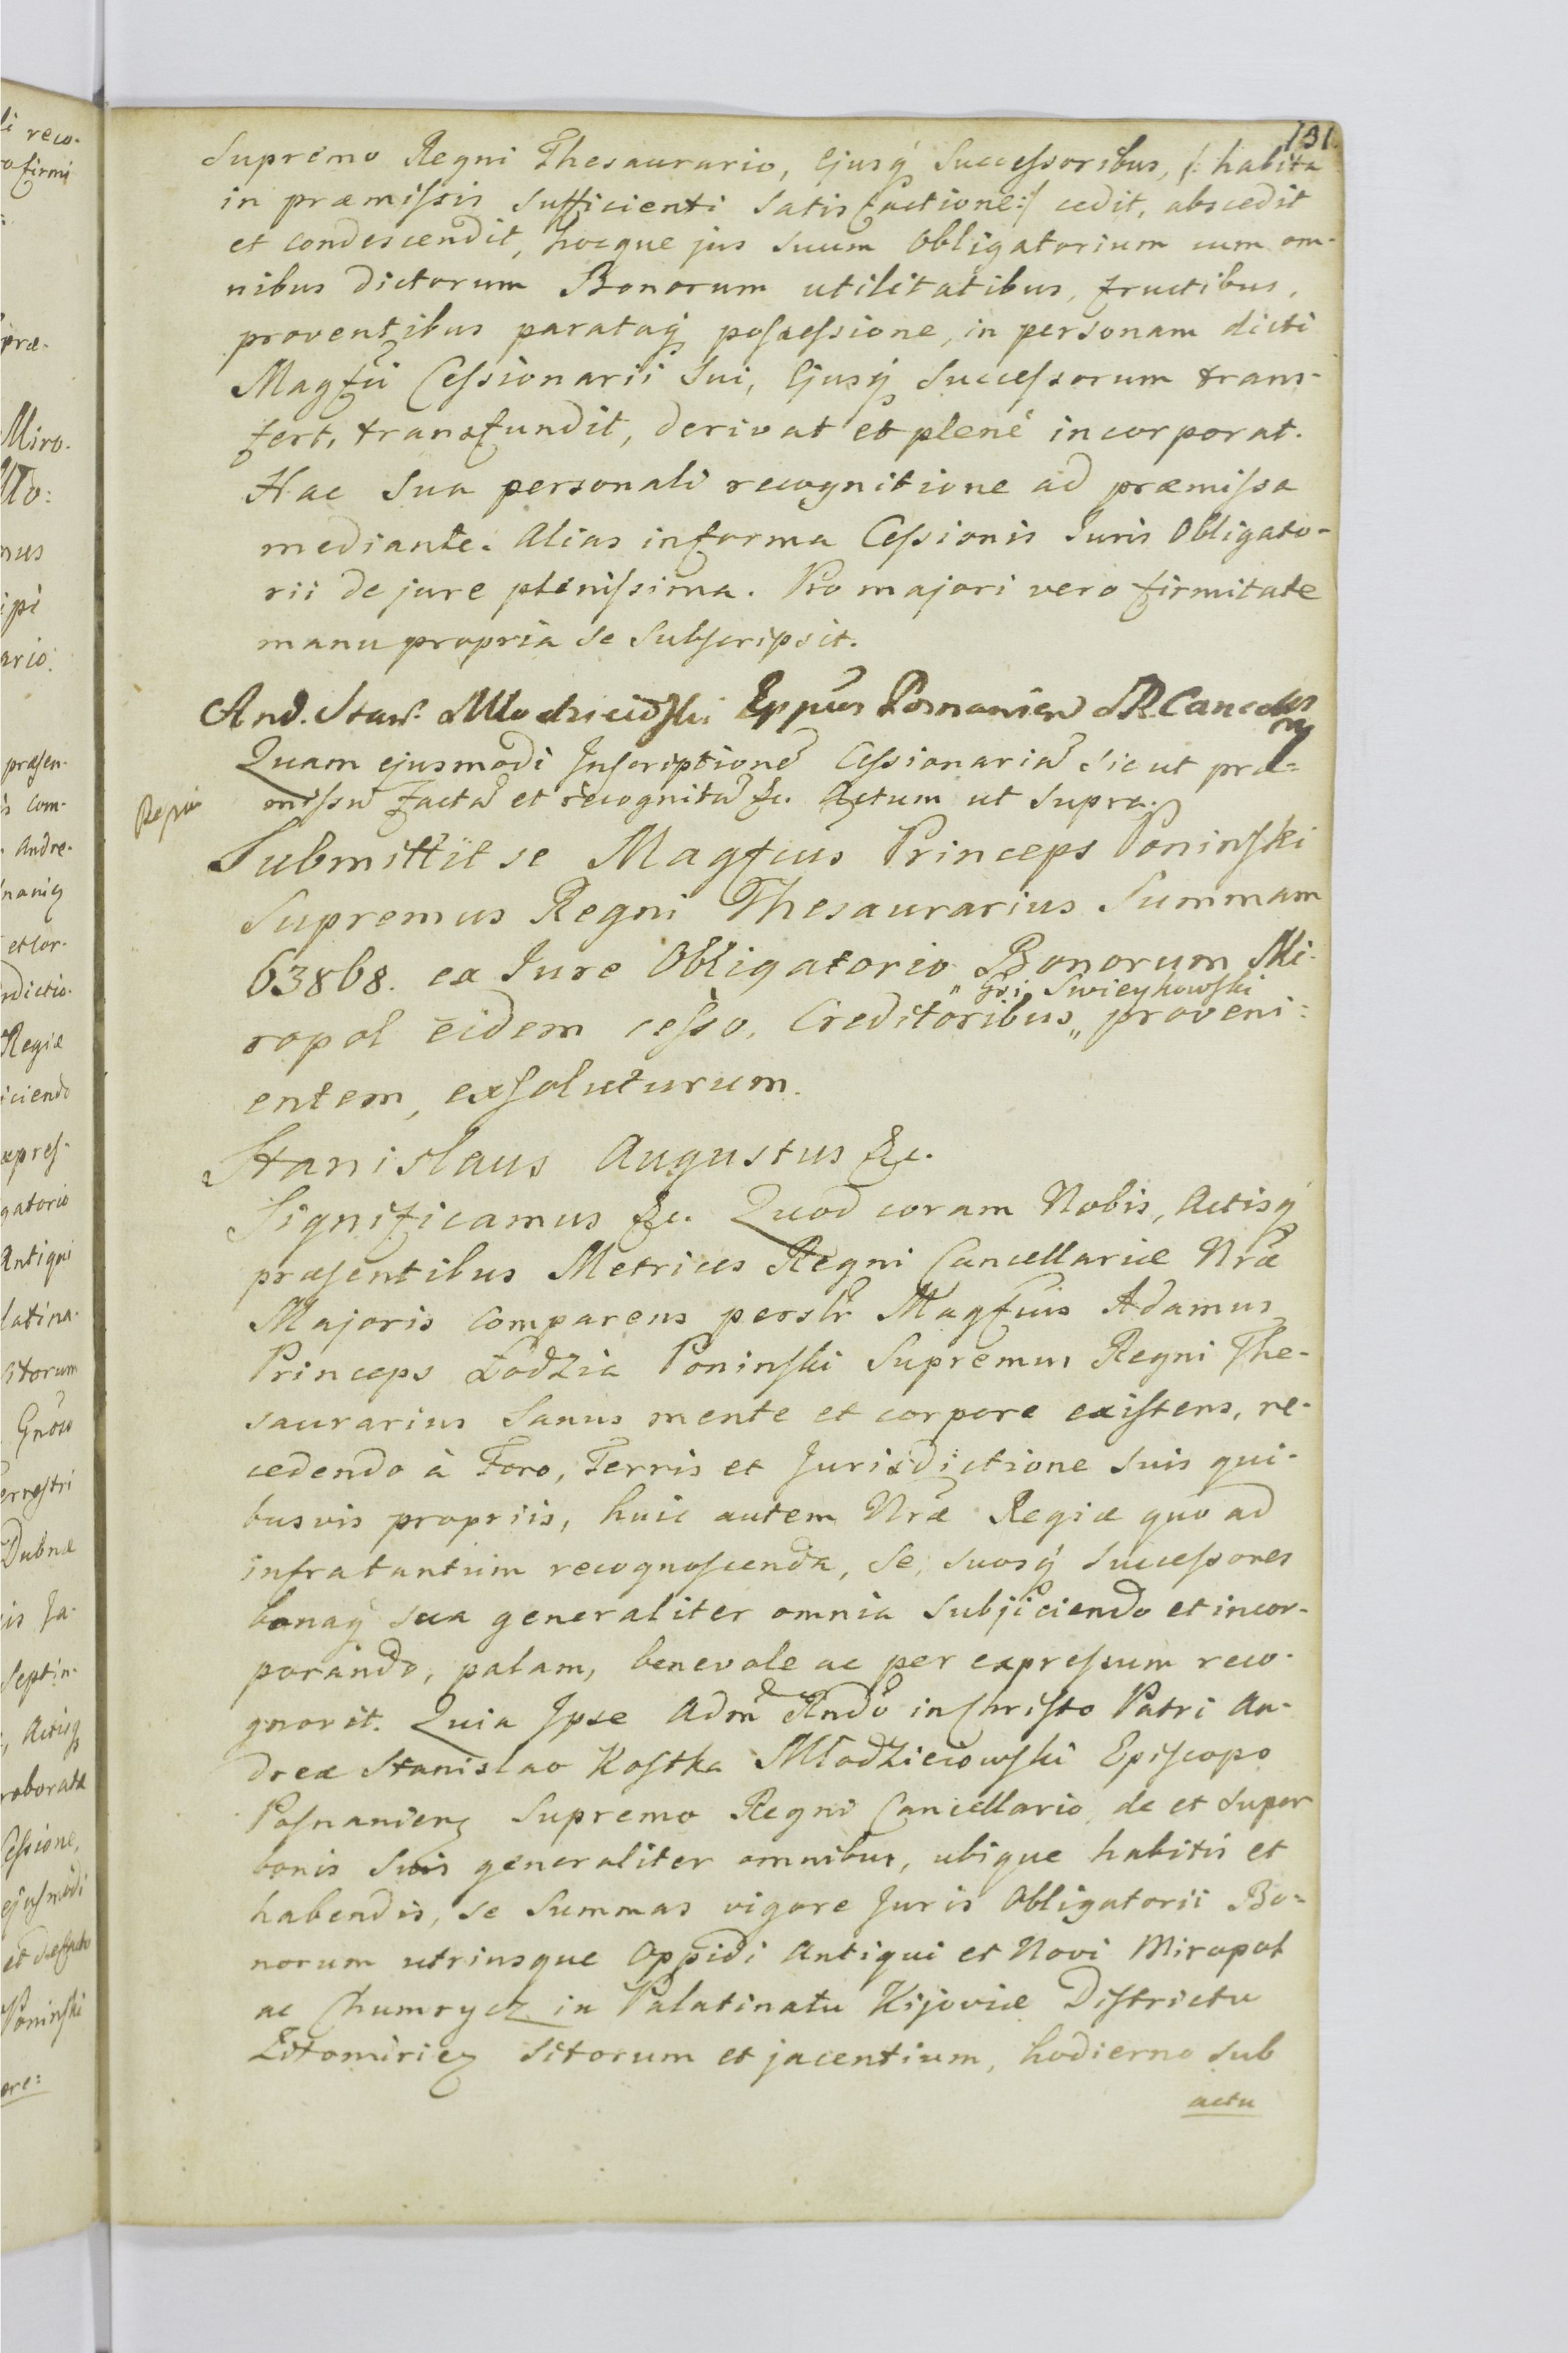 131.
Supremo Regni Thesaurario, Ejusq́ Successoribus, /: habita
in præmissis sufficienti satisfactione :/ cedit, abscedit
et condescendit, hocque jus suum Obligatorium cum om-
nibus dictorum Bonorum utilitatibus, fructibus,
proventibus parataq́ possessione, in personam dicti
Magfci Cessionarii sui, Ejusq́ Successorum trans-
fert, transfundit, derivat et plenè incorporat.
Hac sua personali recognitione ad præmissa
mediante. Alias in forma Cessionis Juris Obligato-
rii de jure plenissima. Pro majori vero firmitate
manu propria se subscripsit.
And. Młodzieiowski Eppus Posnanien S.R. Canc
Quam ejusmodi Inscriptionē Cessionariā sic ut præ-
missū factā et recognitā &c. Actum ut supra.
Submittit se Magfcus Princeps Poninski
Supremus Regni Thesaurarius Summam
63868. ex Jure Obligatorio Bonorum Mi-
„ Swieykowski
ropol eidem cesso, Creditoribus „ proveni-
entem, exsoluturum.
Stanislaus Augustus &c.
Significamus &c. Quod coram Nobis, Actisq́
præsentibus Metrices Regni Cancellariæ Nræ
Majoris comparens persłr Magfcus Adamus
Princeps Łodzia Poninski Supremus Regni The-
saurarius sanus mente et corpore existens, re-
cedendo à Foro, Terris et Jurisdictione suis qui-
busvis propriis, huic autem Nræ Regiæ quo ad
infra tantum recognoscenda, se, suosq́ successores
bonaq́ sua generaliter omnia subjiciendo et incor-
porando, palam, benevole ac per expressum reco-
gnovit. Quia Ipse Admᵒ Rndo in Christo Patri An-
dreæ Stanislao Kostka Młodzieiowski Episcopo
Posnanien Supremo Regni Cancellario de et super
bonis suis generaliter omnibus, ubique habitis et
habendis, se Summas vigore Juris Obligatorii Bo-
norum utriusque Oppidi Antiqui et Novi Miropol
ac Chumrycz in Palatinatu Kijoviæ Districtu
Żytomirien sitorum et jacentium, hodierno sub
actu